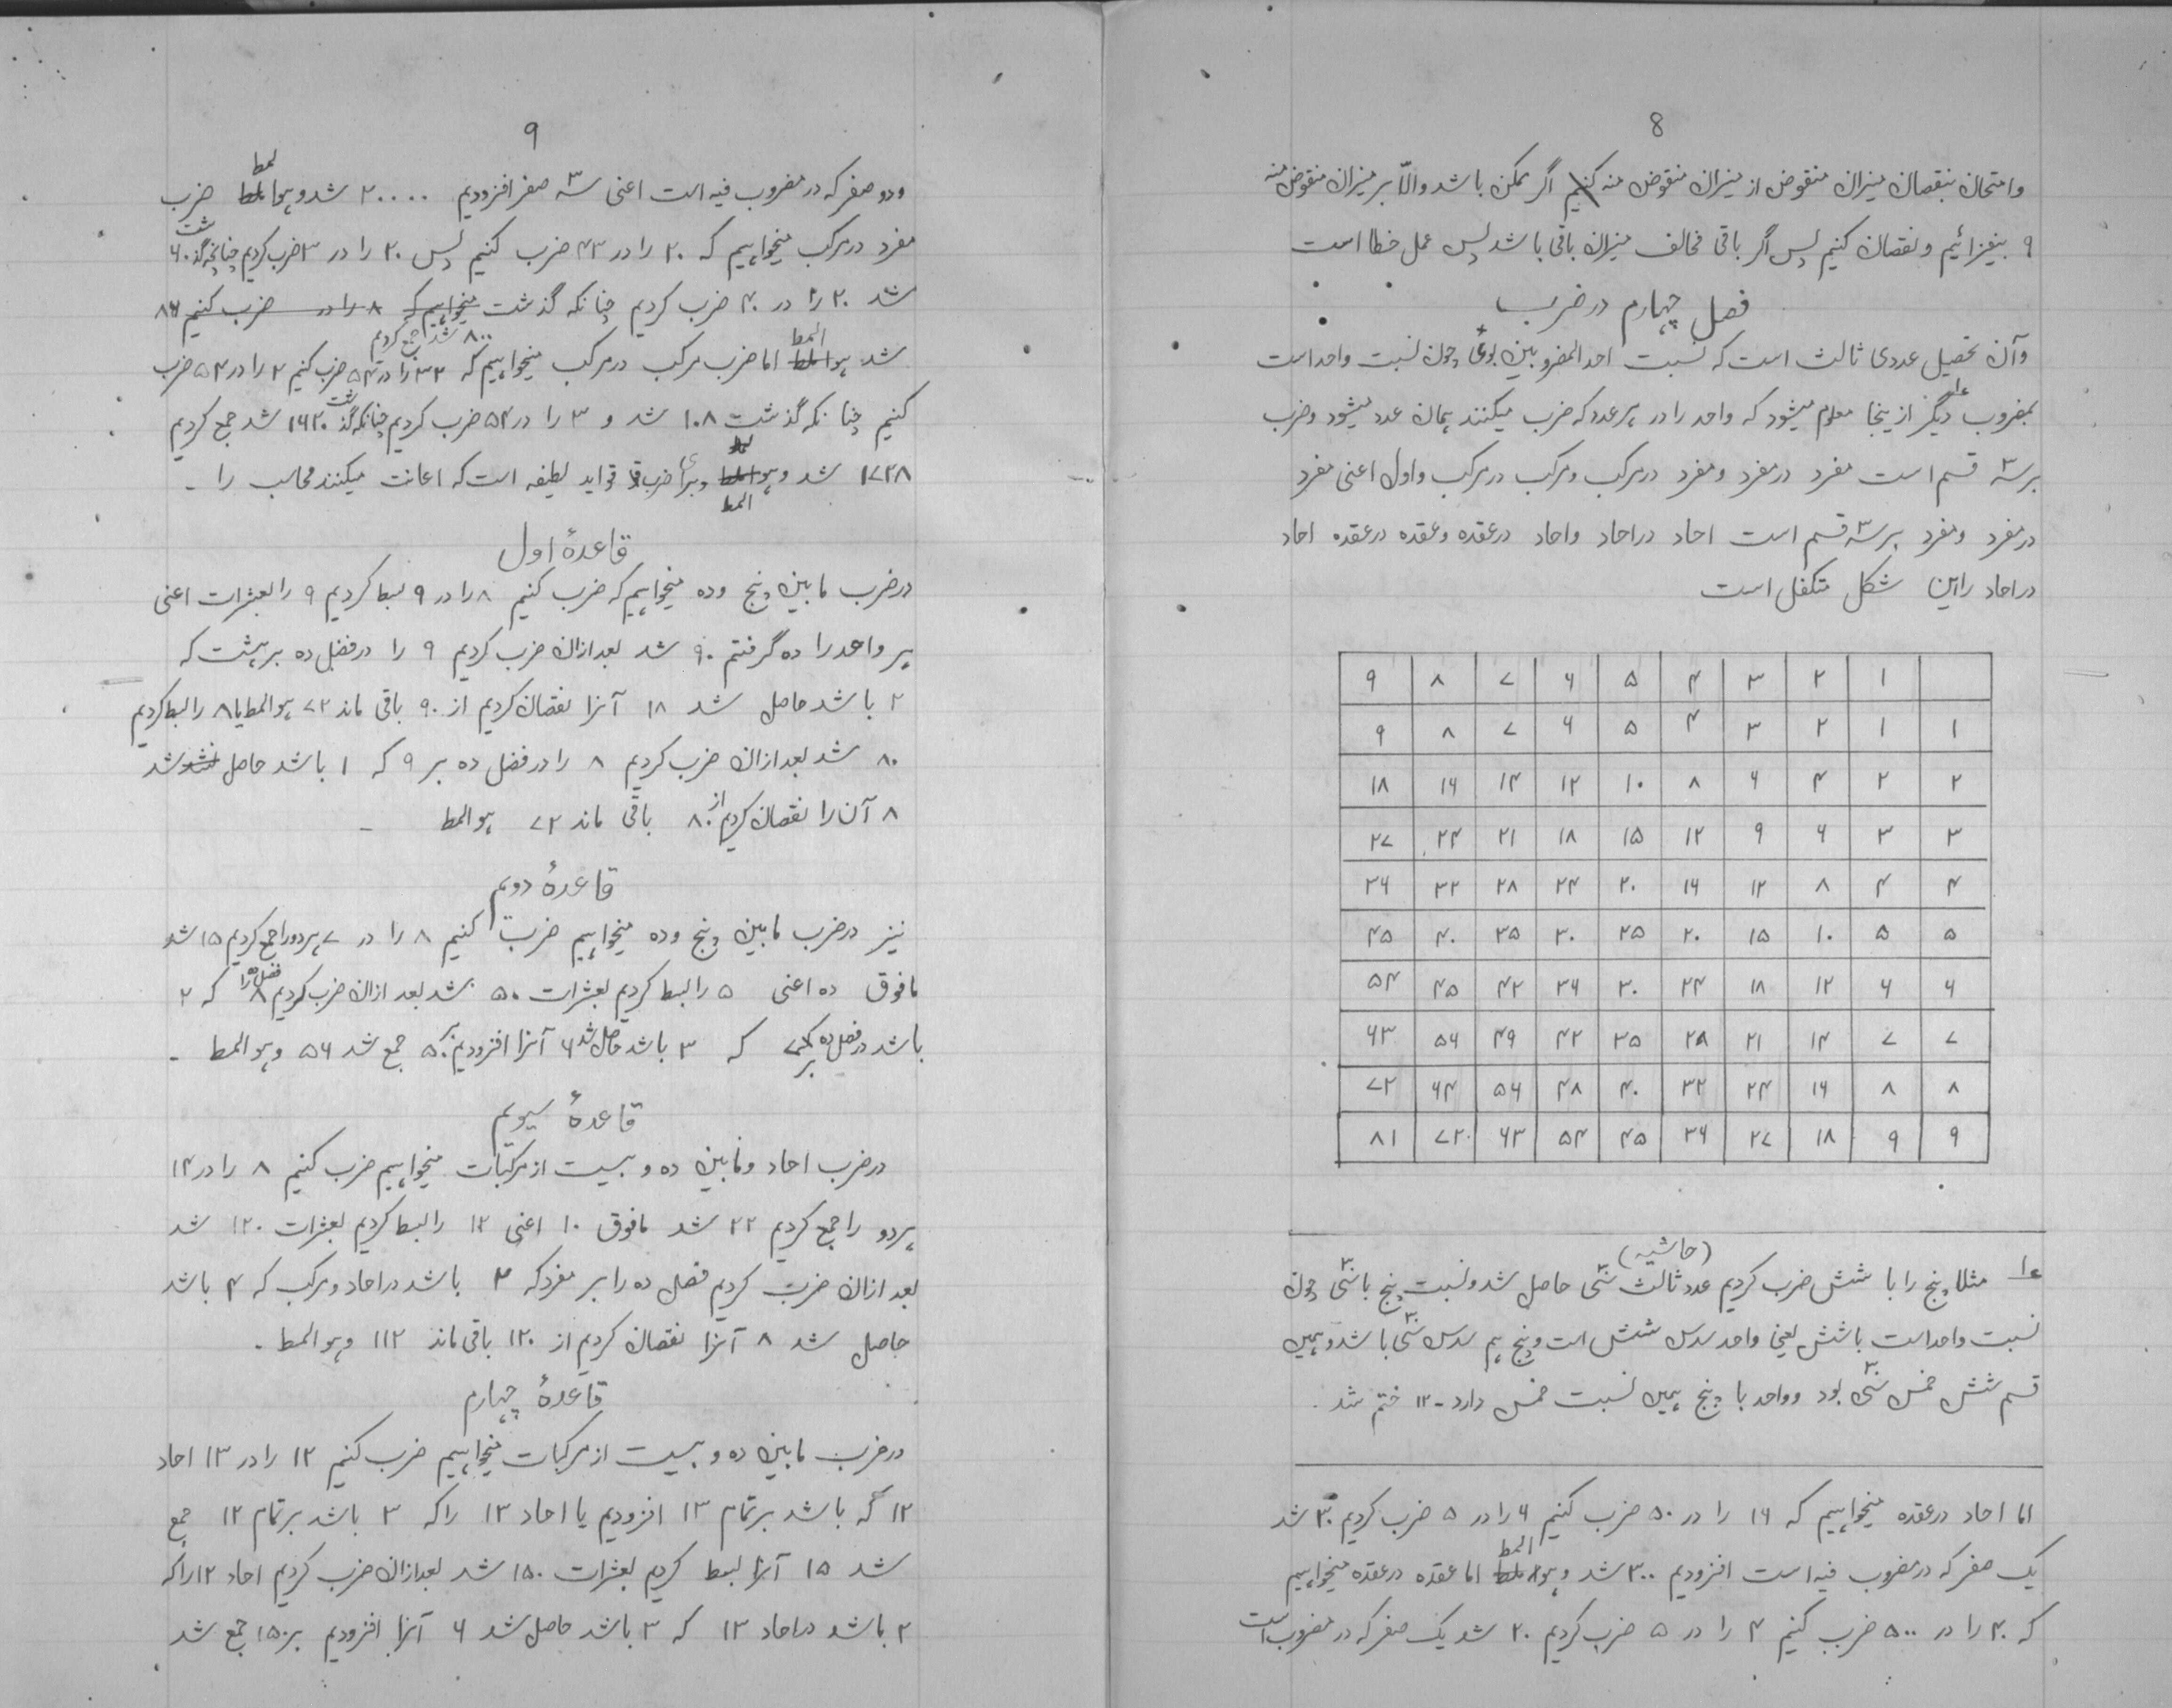 8
وامتحان بنقصان میزان منقوص از میزان منقوص منه کنیم اگر ممکن باشد والّا بر میزان منقوص منه
۹ بیفزائیم و نقصان کنیم پس اگر باقی مخالف میزان باقی باشد پس عمل خطا است
فصل چهارم در ضرب
وآن تحصیل عددی ثالث است که نسبت احد المضروبین بوی چون نسبت واحد است
بمضروب دیگر ازینجا معلوم میشود که واحد را در هر عدد که ضرب میکنند همان عدد میشود وضرب
بر سه قسم است مفرد در مفرد ومفرد در مرکب ومرکب در مرکب واول اعنی مفرد
در مفرد ومفرد بر سه قسم است احاد در احاد واحاد در عقده وعقده در عقده احاد
در احاد را این شکل متکفل است
۹ ۸ ۷ ۶ ۵ ۴ ۳ ۲ ۱
۹ ۸ ۷ ۶ ۵ ۴ ۳ ۲ ۱ ۱
۱۸ ۱۶ ۱۴ ۱۲ ۱۰ ۸ ۶ ۴ ۲ ۲
۲۷ ۲۴ ۲۱ ۱۸ ۱۵ ۱۲ ۹ ۶ ۳ ۳
۳۶ ۳۲ ۲۸ ۲۴ ۲۰ ۱۶ ۱۲ ۸ ۴ ۴
۴۵ ۴۰ ۳۵ ۳۰ ۲۵ ۲۰ ۱۵ ۱۰ ۵ ۵
۵۴ ۴۵ ۴۲ ۳۶ ۳۰ ۲۴ ۱۸ ۱۲ ۶ ۶
۶۳ ۵۶ ۴۹ ۴۲ ۳۵ ۲۸ ۲۱ ۱۴ ۷ ۷
۷۲ ۶۴ ۵۶ ۴۸ ۴۰ ۳۲ ۲۴ ۱۶ ۸ ۸
۸۱ ۷۲ ۶۳ ۵۴ ۴۵ ۳۶ ۲۷ ۱۸ ۹ ۹
(حاشیه)
مثلا پنج را با شش ضرب کردیم عدد ثالث سی حاصل شد ونسبت پنج با سی چون
نسبت واحد است با شش یعنی واحد سدس شش است وپنج هم سدس سی باشد وهمین
قسم شش خمس سی بود وواحد با پنج همین نسبت خمس دارد - ۱۲ ختم شد
اما احاد در عقده میخواهیم که ۱۶ را در ۵۰ ضرب کنیم ۶ را در ۵ ضرب کردیم ۳۰ شد
یک صفر که در مضروب فیه است افزودیم ۳۰۰ شد وهو المط اما عقده در عقده میخواهیم
که ۴۰ را در ۵۰۰ ضرب کنیم ۴ را در ۵ ضرب کردیم ۲۰ شد یک صفر که در مضروب است
۹
ودو صفر که در مضروب فیه است اعنی سه صفر افزودیم ۲۰۰۰۰ شد وهو المط ضرب
مفرد در مرکب میخواهیم که ۲۰ را در ۴۳ ضرب کنیم پس ۲۰ را در ۳ ضرب کردیم چنانچه گذشت ۶۰
شد ۲۰ را در ۴۰ ضرب کردیم چنانکه گذشت میخواهیم که ۸ را در ضرب کنیم ۸۶
۸۰۰ شد جمع کردیم
شد هو المط اما ضرب مرکب در مرکب میخواهیم که ۳۲ را در ۵۴ ضرب کنیم ۲ را در ۵۴ ضرب
کنیم چنانکه گذشت ۱۰۸ شد و ۳ را در ۵۴ ضرب کردیم چنانکه گذشت ۱۶۲۰ شد جمع کردیم
۱۷۲۸ شد وهو المط وبرای ضرب قواید لطیفه است که اعانت میکنند محاسب را -
قاعدهٔ اول
در ضرب مابین پنج وده میخواهیم که ضرب کنیم ۸ را در ۹ بسط کردیم ۹ را بعشرات اعنی
هر واحد را ده گرفتم ۹۰ شد بعد ازان ضرب کردیم ۹ را در فضل ده بر هشت که
۲ باشد حاصل شد ۱۸ آنرا نقصان کردیم از ۹۰ باقی ماند ۷۲ هو المط یا ۸ را بسط کردیم
۸۰ شد بعد ازان ضرب کردیم ۸ را در فضل ده بر ۹ که ۱ باشد حاصل شد
۸ آن را نقصان کردیم از ۸۰ باقی ماند ۷۲ هو المط -
قاعدهٔ دویم
نیز در ضرب مابین پنج وده میخواهیم ضرب کنیم ۸ را در ۷ هر دو را جمع کردیم ۱۵ شد
مافوق ده اعنی ۵ را بسط کردیم بعشرات ۵۰ شد بعد ازان ضرب کردیم فضل ده را ۸ که ۲
باشد در فضل ده بر ۷ که ۳ باشد حاصل شد ۶ آنرا افزودیم بر ۵۰ جمع شد ۵۶ وهو المط -
قاعدهٔ سیوم
در ضرب احاد ومابین ده وبیست از مرکبات میخواهیم ضرب کنیم ۸ را در ۱۴
هر دو را جمع کردیم ۲۲ شد مافوق ۱۰ اعنی ۱۲ را بسط کردیم بعشرات ۱۲۰ شد
بعد ازان ضرب کردیم فضل ده را بر مفرد که ۲ باشد در احاد ومرکب که ۴ باشد
حاصل شد ۸ آنرا نقصان کردیم از ۱۲۰ باقی ماند ۱۱۲ وهو المط -
قاعدهٔ چهارم
در ضرب مابین ده وبیست از مرکبات میخواهیم ضرب کنیم ۱۲ را در ۱۳ احاد
۱۲ که باشد بر تمام ۱۳ افزودیم یا احاد ۱۳ را که ۳ باشد بر تمام ۱۲ جمع
شد ۱۵ آنرا بسط کردیم بعشرات ۱۵۰ شد بعد ازان ضرب کردیم احاد ۱۲ را که
۲ باشد در احاد ۱۳ که ۳ باشد حاصل شد ۶ آنرا افزودیم بر ۱۵۰ جمع شد